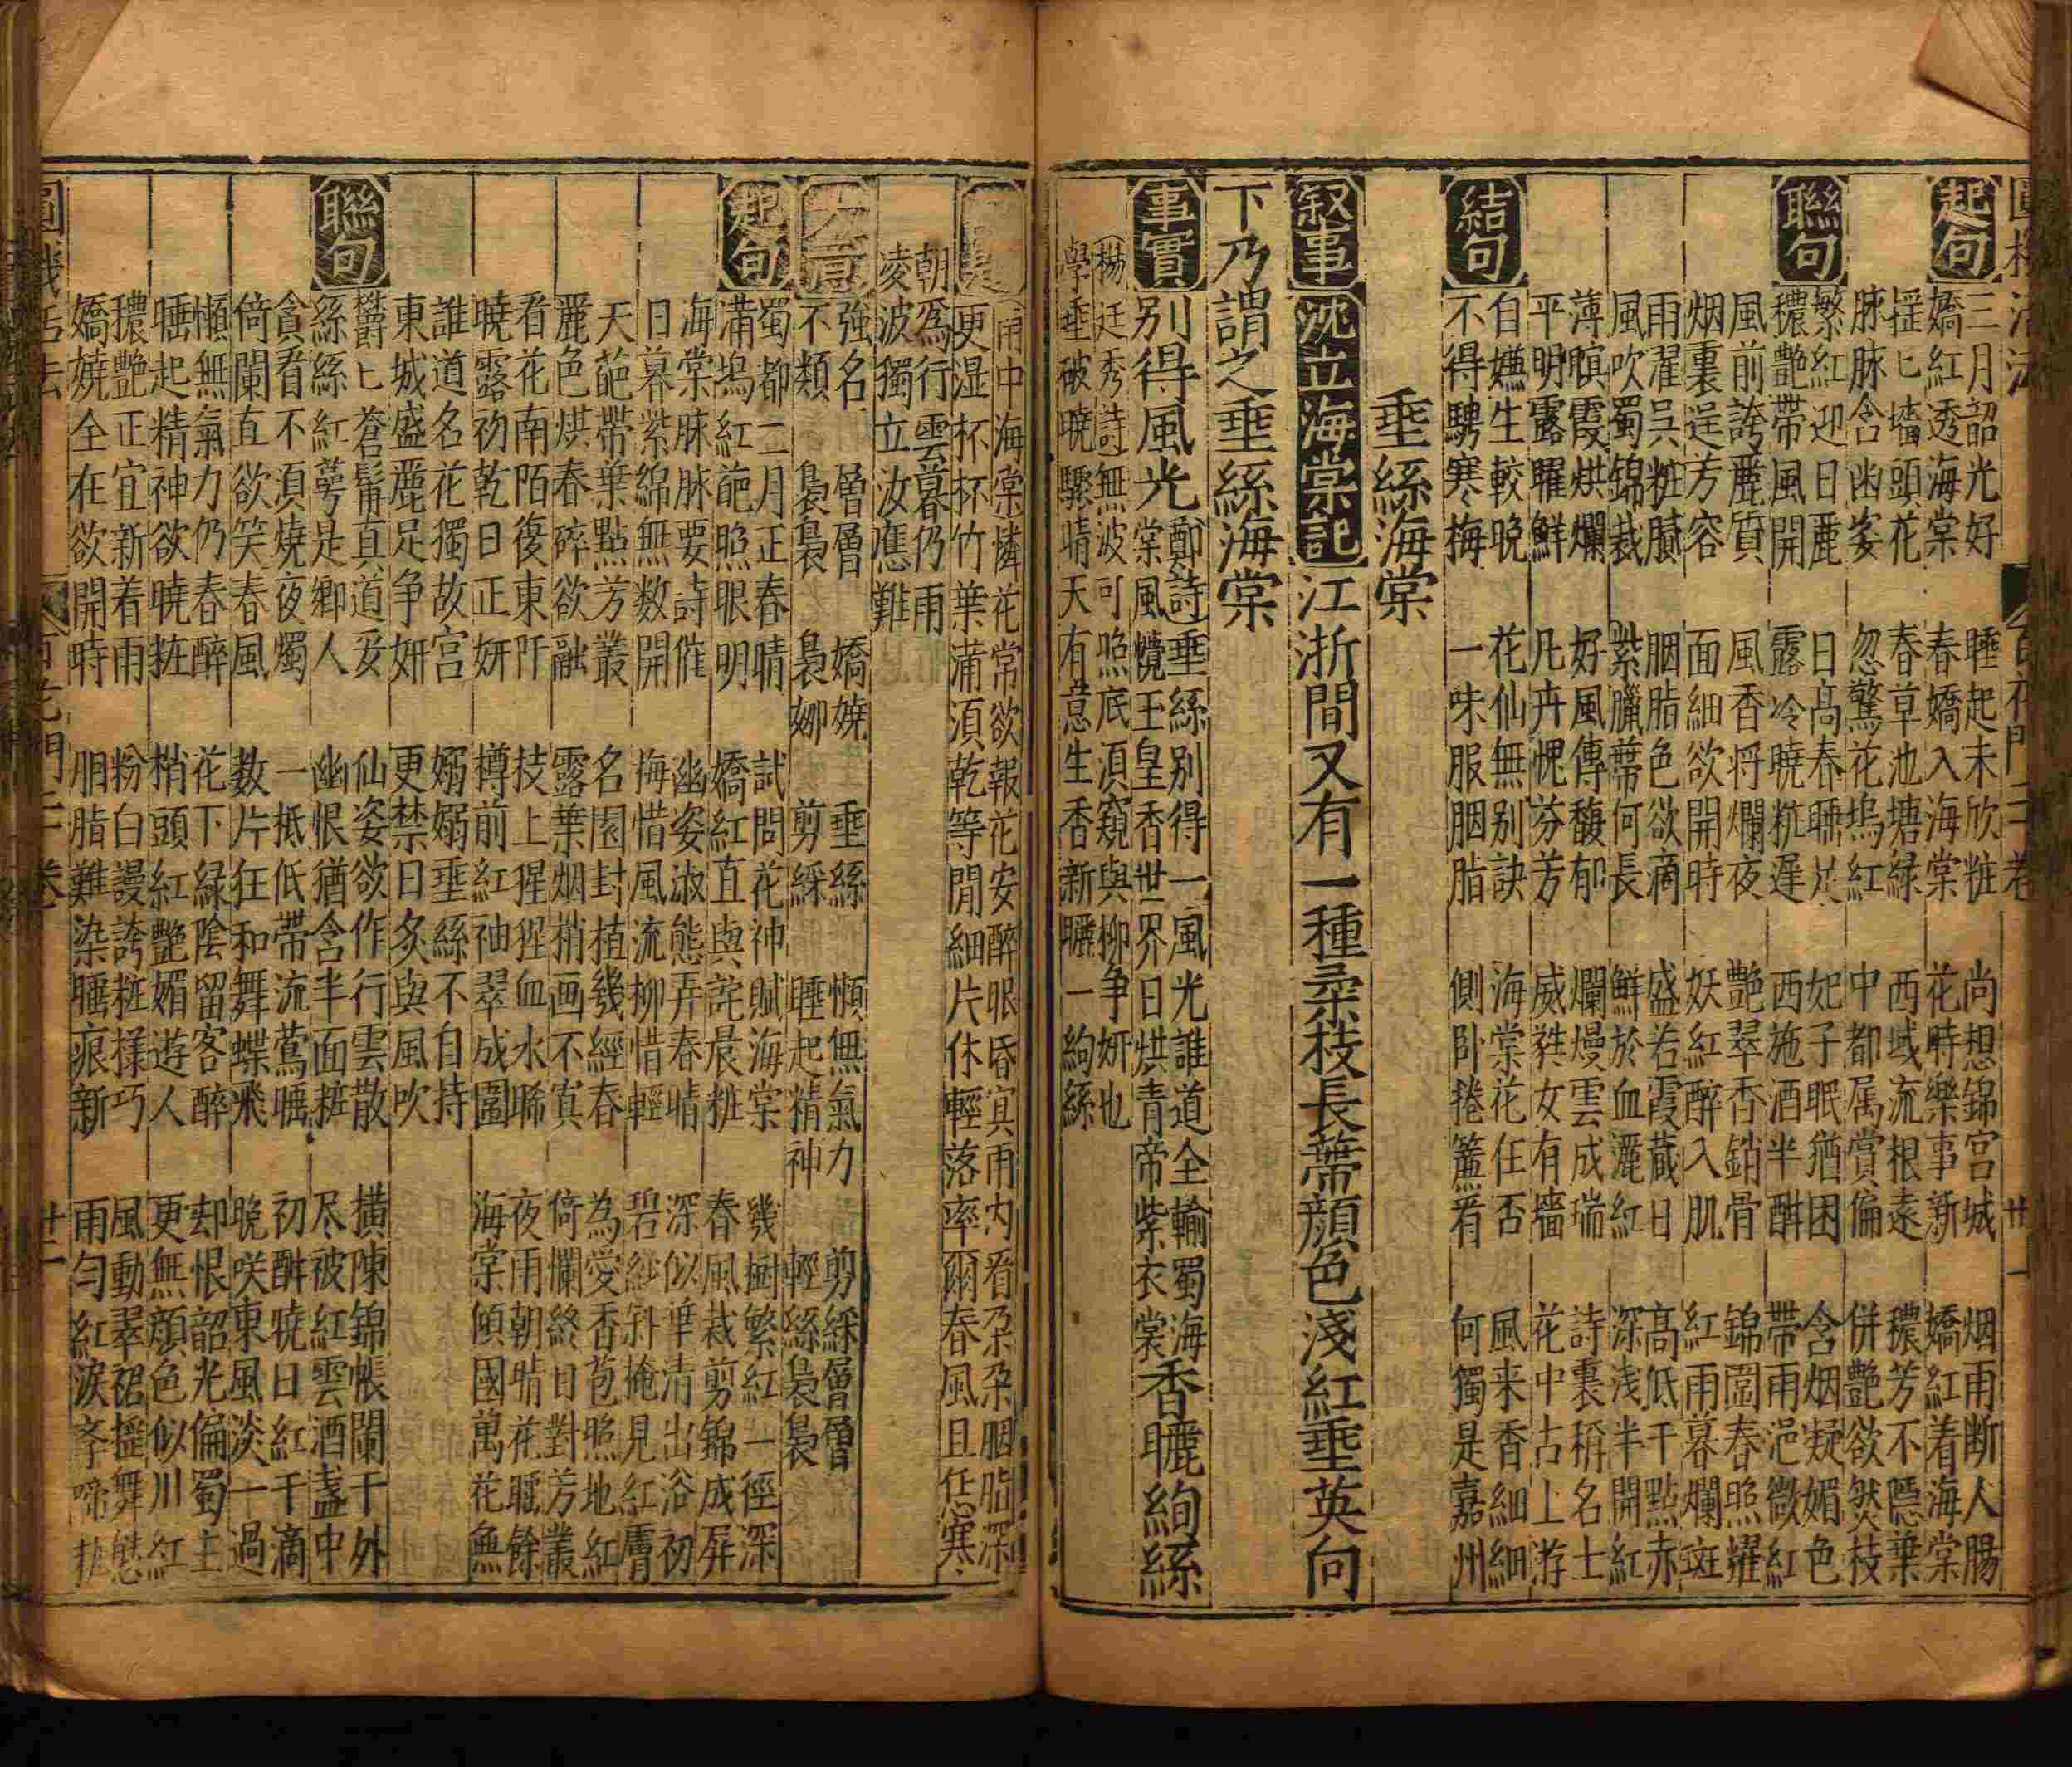 圓機活法 百花門二十卷 廿一
起句 三月韶光好 睡起未欣粧 尚想錦宮城 烟雨断人腸
嬌紅透海棠 春嬌入海棠 花時樂事新 嬌紅着海棠
揺匕墻頭花 春草池塘綠 西域流根遠 穠芳不隠葉
脉脉含幽姿 忽驚花塢紅 中都属賞偏 併艶欲燃枝
聯句 繁紅迎日麗 日高春睡足 妃子眠猶困 含烟凝媚色
穠艶帶風開 露冷曉粧遲 西施酒半酣 帶雨浥微紅
風前誇麗質 風香将爛夜 艶翠香銷骨 錦圍春照耀
烟裏逞芳容 面細欲開時 妖紅醉入肌 紅雨暮爛斑
雨濯吳粧膩 胭脂色欲滴 盛若霞藏日 高低千點赤
風吹蜀錦裁 紫臘蔕何長 鮮於血灑紅 深浅半開紅
薄暝霞烘爛 好風傳馥郁 爛熳雲成瑞 詩裏稱名士
平明露曜鮮 凡卉愧芬芳 威甤女有墻 花中古上游
結句 自嫌生較晚 花仙無别訣 海棠花住否 風来香細細
不得騁寒梅 一味服胭脂 側卧捲簾看 何獨是嘉州
垂絲海棠
叙事 沈立海棠記 江浙間又有一種柔枝長蔕顏色淺紅垂英向
下乃謂之垂絲海棠
事實 别得風光 鄭詩垂絲别得一風光誰道全輸蜀海
棠風攪玉皇香世界日烘青帝紫衣裳 香曬絢絲
楊廷秀詩無波可照底湏窺與柳争妍也
學垂破曉驟晴天有意生香新曬一絢絲
雨中海棠憐花常欲報花安醉眼昏寘雨内看朶朶胭脂深
更湿杯杯竹葉蒲湏乾等閒細片休輕落率爾春風且恁寒
朝為行雲暮仍雨
凌波獨立汝應難
大意 強名 層層 嬌嬈 垂絲 懶無氣力 剪綵層層
不類 裊裊 裊娜 剪綵 睡起精神 輕絲裊裊
起句 蜀都二月正春晴 試問花神賦海棠 幾樹繁紅一徑深
滿塢紅葩照眼明 嬌紅直與詫晨粧 春風裁剪錦成屏
海棠脉脉要詩催 幽姿淑態弄春晴 深似準清出浴初
日暮紫綿無数開 梅惜風流柳惜輕 碧紗斜掩見紅膚
天葩帶葉點芳叢 名園封植幾經春 為愛香苞照地紅
麗色烘春碎欲融 露葉烟梢画不真 倚欄終日對芳叢
看花南陌復東阡 技上猩猩血水晞 夜雨朝晴花睡餘
曉露初乾日正妍 樽前紅袖翠成圍 海棠傾國萬花無
誰道名花獨故宮 嫋嫋垂絲不自持
東城盛麗足争妍 更禁日炙與風吹
聯句 欝匕蒼髯真道妥 仙姿欲作行雲散 横陳錦帳闌干外
絲絲紅萼是鄉人 幽恨猶含半面粧 尽被紅雲酒盞中
貪看不湏燒夜燭 一抵低帶流鶯睡 初酣曉日紅千滴
倚闌直欲笑春風 数片狂和舞蝶飛 晚咲東風淡一過
懶無氣力仍春醉 花下緑陰留客醉 却恨韶光偏蜀主
睡起精神欲曉粧 梢頭紅艶媚遊人 更無顏色似川紅
穠艶正宜新着雨 粉白謾誇粧様巧 風動翠裙揺舞
嬌嬈全在欲開時 胭脂難染睡痕新 雨匀紅淚
圓機活法 百花門二十卷 廿二